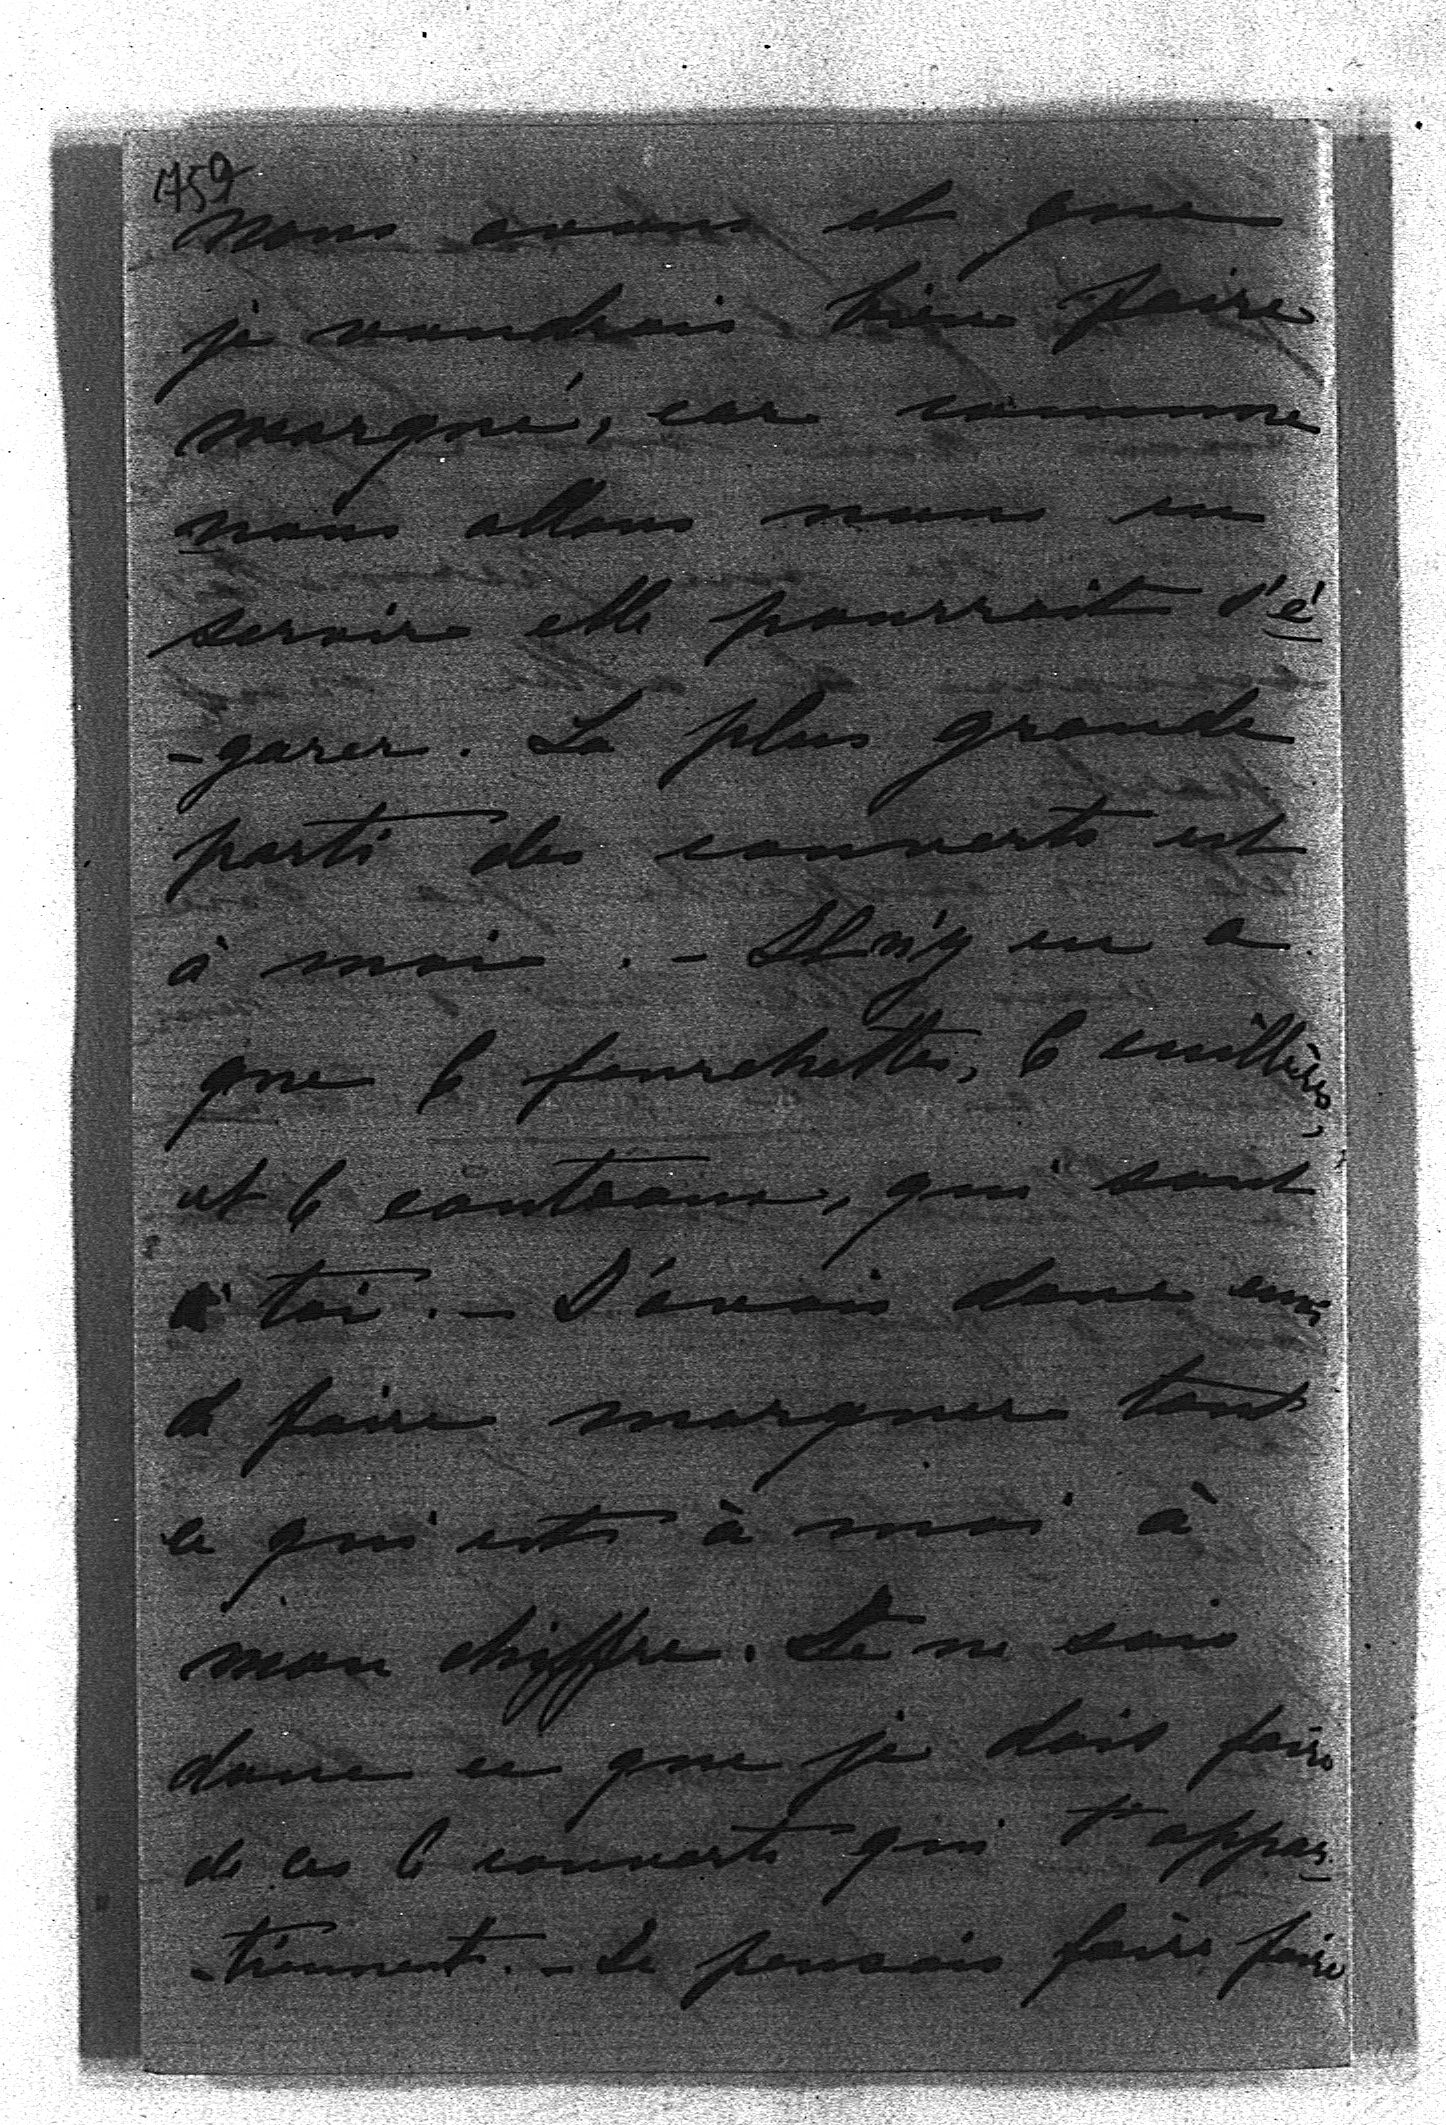 1759
nous avons et que
je voudrais bien faire
marqué, car comme
nous allons nous en
servire elle pourrait s'é
-garer. La plus grande
parti des couverts est
à moi. - Il n'y en a
que 6 fourchettes, 6 cuillères,
et 6 couteaux, qui sont
à toi. - J'avais donc
de faire marquer tout
ce qui est à moi à
mon chiffre. Je ne sais
donc ce que je dois faire
de ces 6 couverts qui t'appar
-tiennent. - Je pensais faire faire